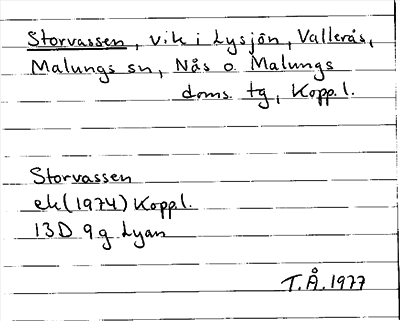 Storvassen, vik i Lysjön, Vallerås,
Malungs sn, Nås o Malungs
doms. tg, Kopp.l.
Storvassen
ek (1974) Kopp.l.
13D 9g Lyan
T.Å. 1977